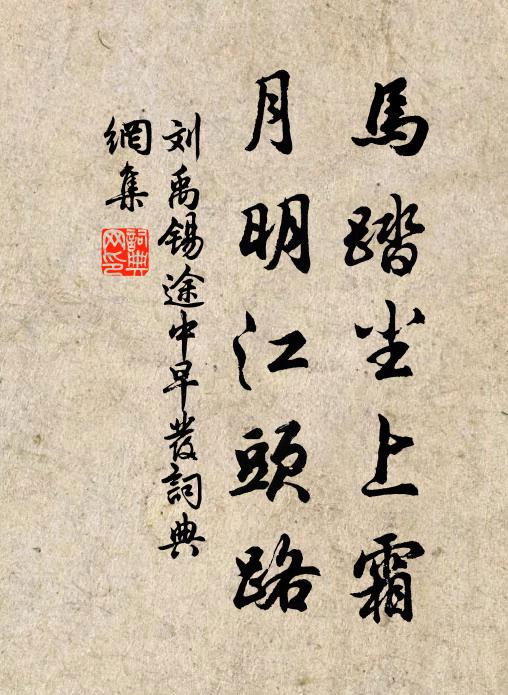 馬踏尘上霜
月明江頭路
刘禹锡途中早發詞典
網集
詞典
网印